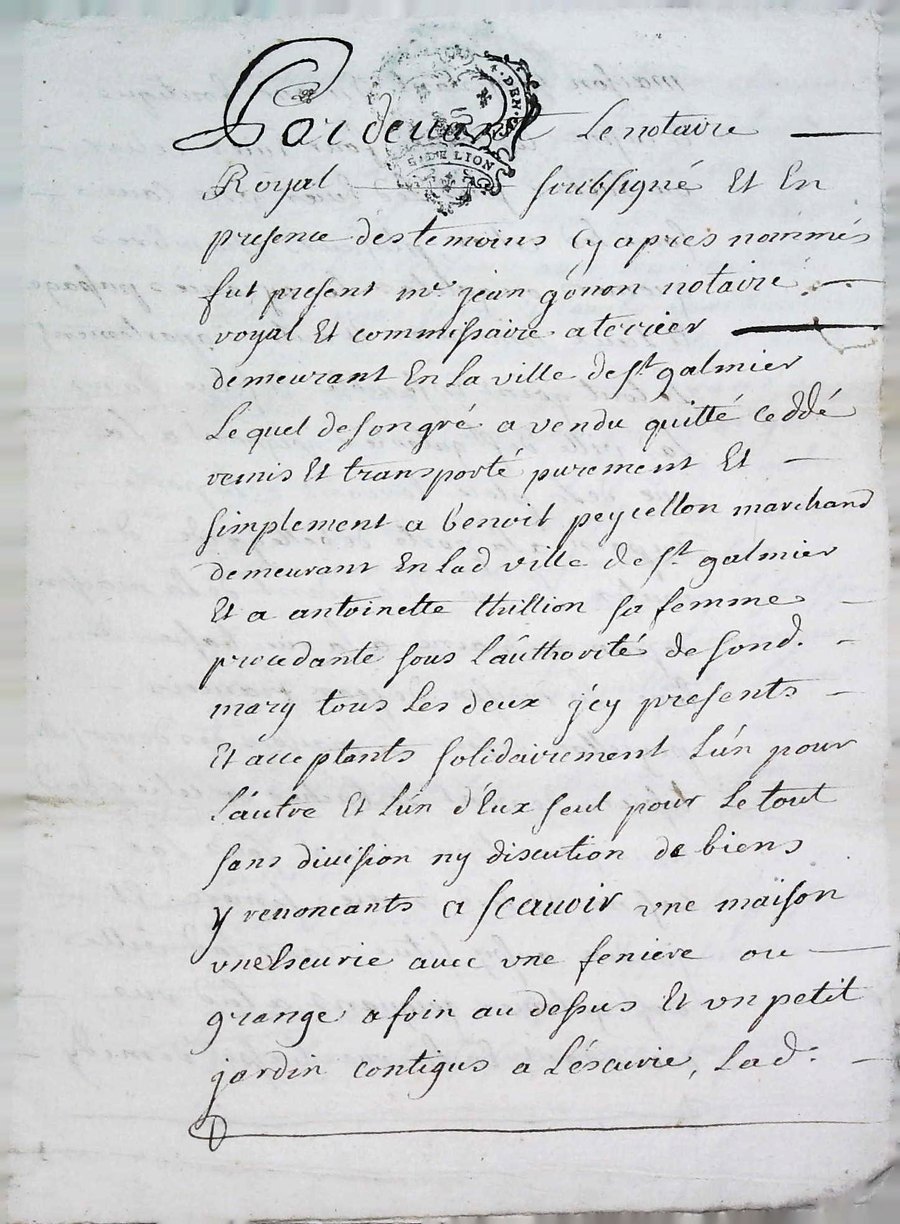 Pardevant Le notaire
DEN.
G. DE LION
Royal soubsigné Et En
presence des temoins Cy apres nommés
fut present mr. jean gonon notaire
royal Et commissaire a terrier
demeurant En La ville de st. galmier
Lequel de son gré a vendu quitté ceddé
remis Et transporté purement Et
simplement a benoit peycellon marchand
demeurant En Lad ville de st. galmier
Et a antoinette thillion sa femme
procedante sous L'authorité de sond.
mary tous Les deux j'cy presents
Et acceptants solidairement L'un pour
L'autre Et L'un d'Eux seul pour Le tout
sans division ny discution de biens
y renonceants a scavoir vne maison
vne Escurie avec vne feniere ou
grange a foin au dessus Et vn petit
jardin contigus a L'éscurie, Lad.